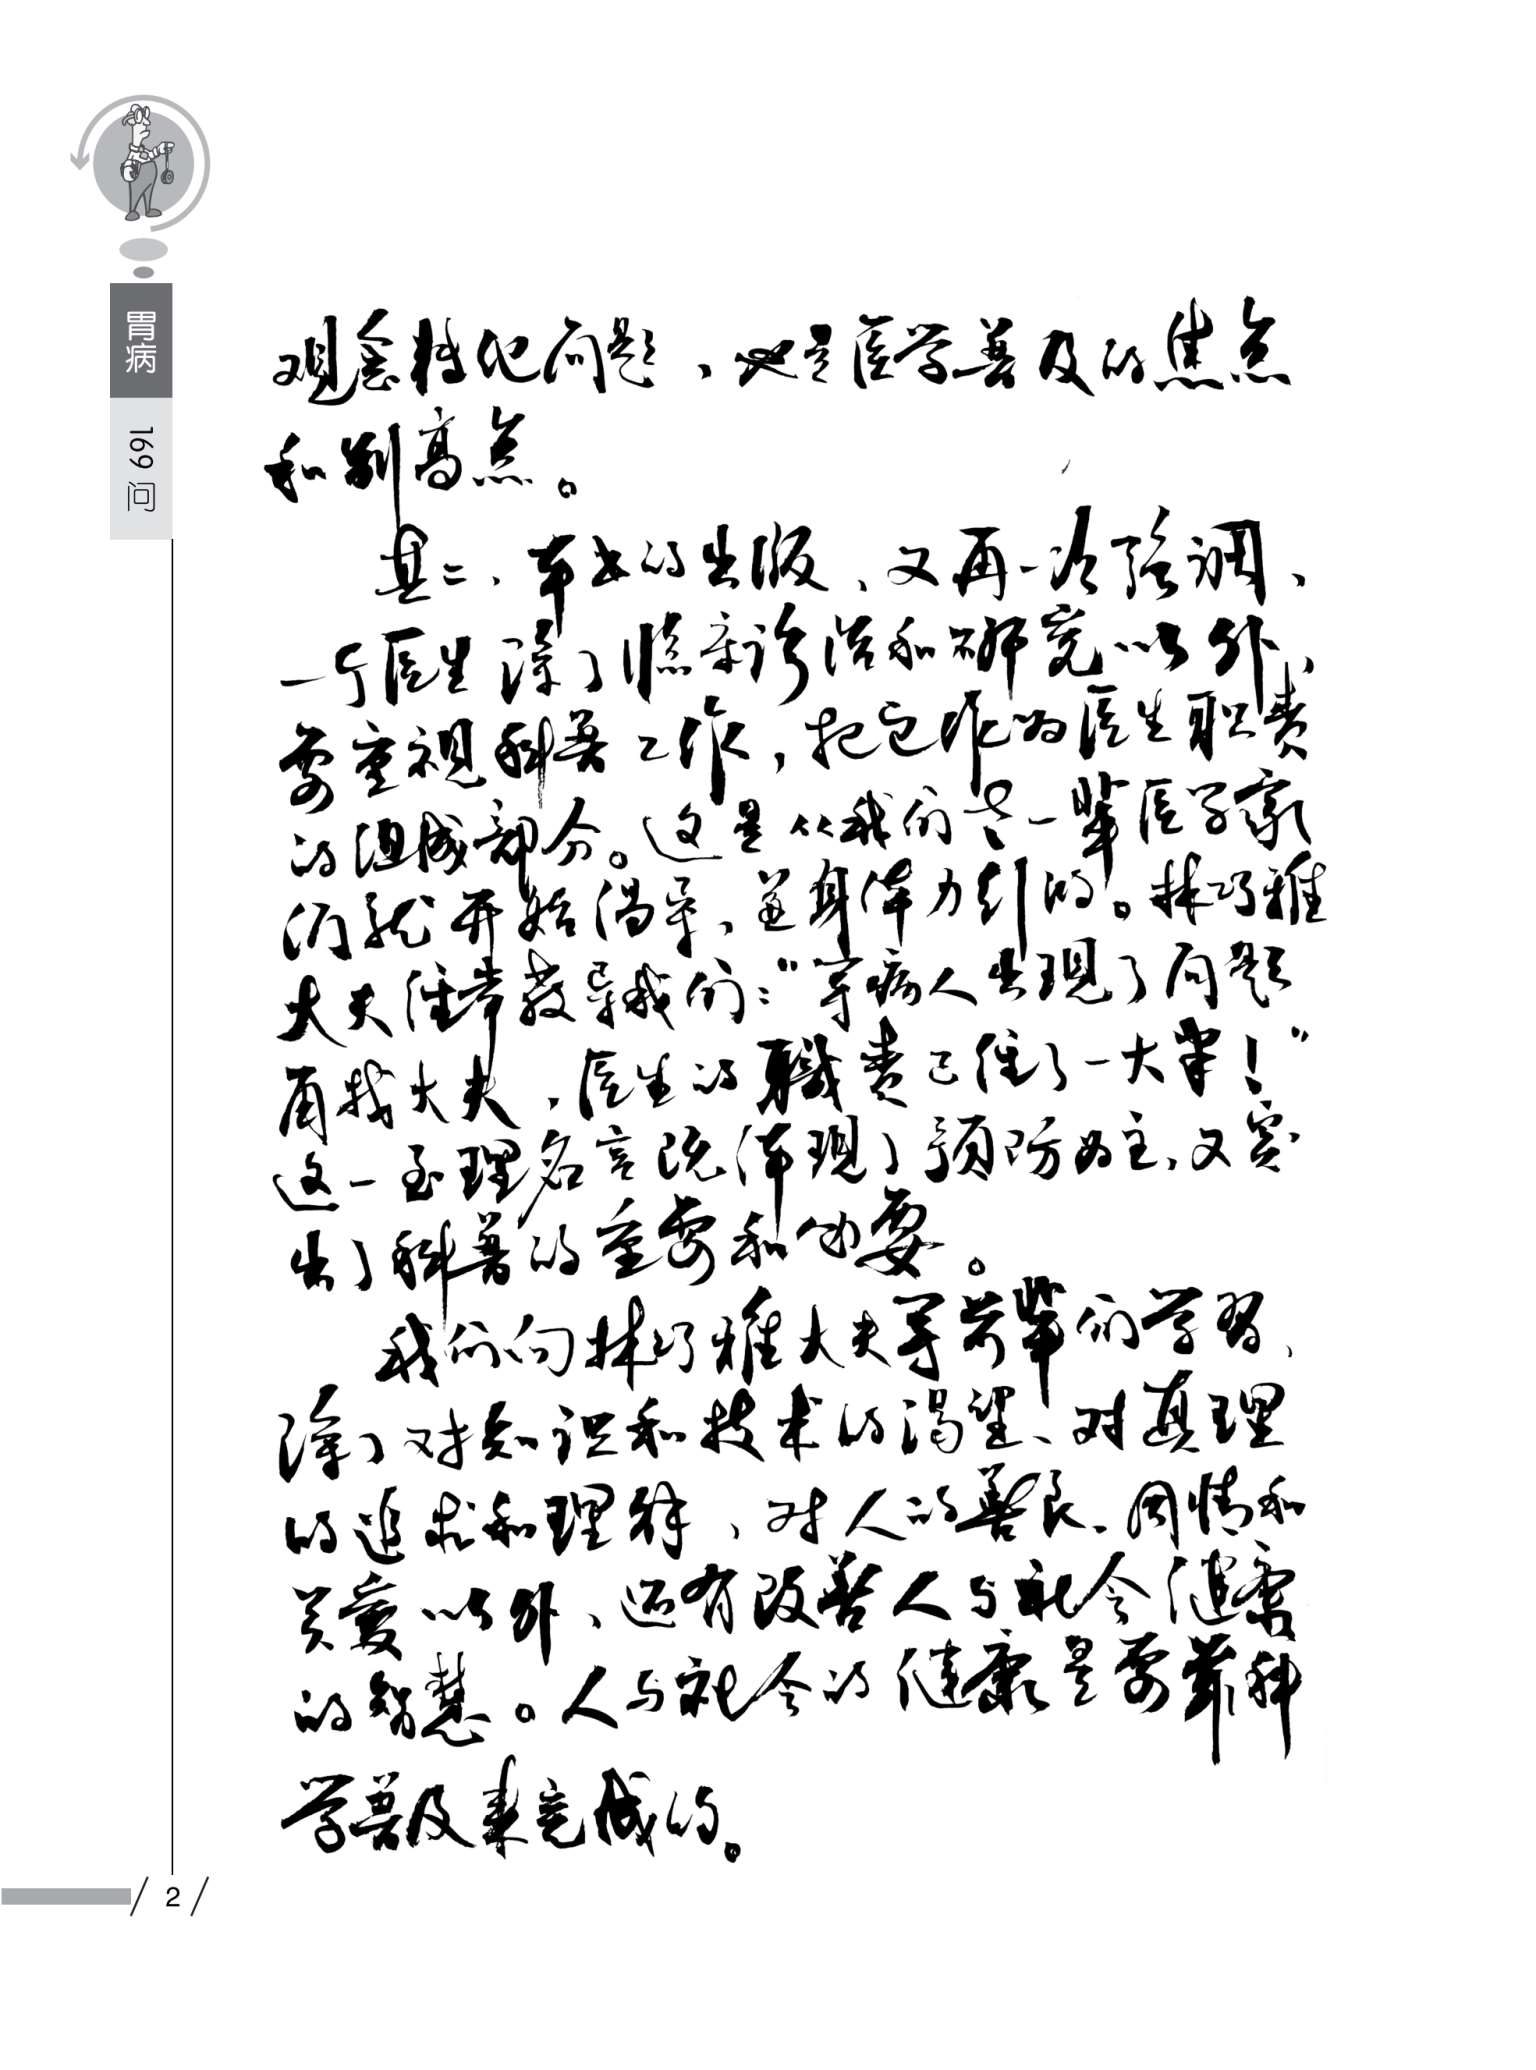 胃病
169
问
观念转化问题，也是医学普及的焦点
和制高点。
其二，本书的出版，又再一次强调，
一个医生除了临床诊治和研究以外，
要重视科普工作，把它作为医生职责
的组成部分。这是从我们老一辈医学家
们就开始倡导，并身体力行的。林巧稚
大夫经常教导我们：“等病人出现了问题
再找大夫，医生的职责已经丢了一大半！”
这一至理名言既体现了预防为主，又突
出了科普的重要和必要。
我们向林巧稚大夫等前辈们学习，
除了对知识和技术的渴望、对真理
的追求和理解，对人的善良、同情和
关爱以外，还有改善人与社会健康
的智慧。人与社会的健康是要靠科
学普及来完成的。
2